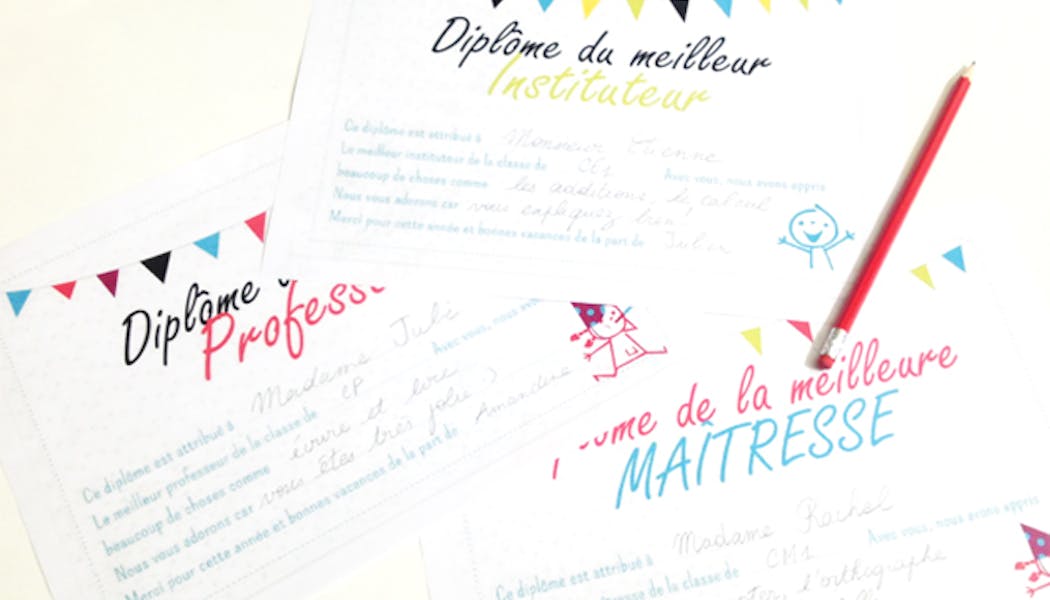 Diplôme du meilleur
Instituteur
Ce diplôme est attribué à Monsieur Etienne
Le meilleur instituteur de la classe de CE1 Avec vous, nous avons appris
beaucoup de choses comme les additions, le calcul
Nous vous adorons car vous expliquez bien !
Merci pour cette année et bonnes vacances de la part de Julien
Diplôme
Professe
Ce diplôme est attribué à Madame Julie
Le meilleur professeur de la classe de CP Avec vous, nous avons
beaucoup de choses comme écrire et lire
Nous vous adorons car vous êtes très jolie :)
Merci pour cette année et bonnes vacances de la part de Amandine
ôme de la meilleure
MAÎTRESSE
Ce diplôme est attribué à Madame Rachel
meilleure maîtresse de la classe de CM1 Avec vous, nous avons appris
l'orthographe